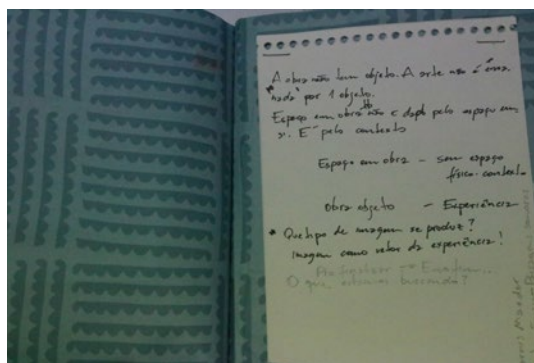 A obra não tem objeto. A arte não é ema
nada" por 1 objeto.
Espaço em obra não é dado pelo espaço em
si. E pelo contexto
Espaço em obra - sem espaço
físico. contexto
Obra objeto - Experiência
* Que tipo de imagem se produz?
Imagem como vetor da experiência!
O que estamos buscando?